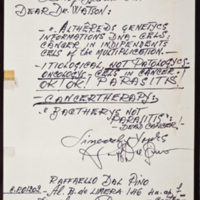 DEAR DR. WATSON:
- ALTHERED GENETICS
INFORMATIONS DNA-CELLS:
CANCER IN INDIPENDENTS
CELL OF THE MULTIPLICATION.-
-ITIOLOGICAL, NOT PATOLOGYCS
ONCOLOGY-CELL IN CANCER!
OR/OR: PARASITIS
CANCERTHERAPY:
BACTHERY IS NOT
"PARASITIS":
DEAD CANCER!
Sincerely Yours
RAFFAELLO DAL PINO
AL. B. DE LIBERA 146